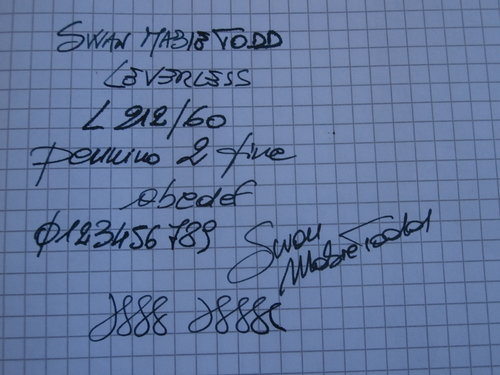 SWAN MABIE TODD
LEVERLESS
L 212/60
pennino 2 fine
abcdef
0123456789
Swan
Mabie Todd